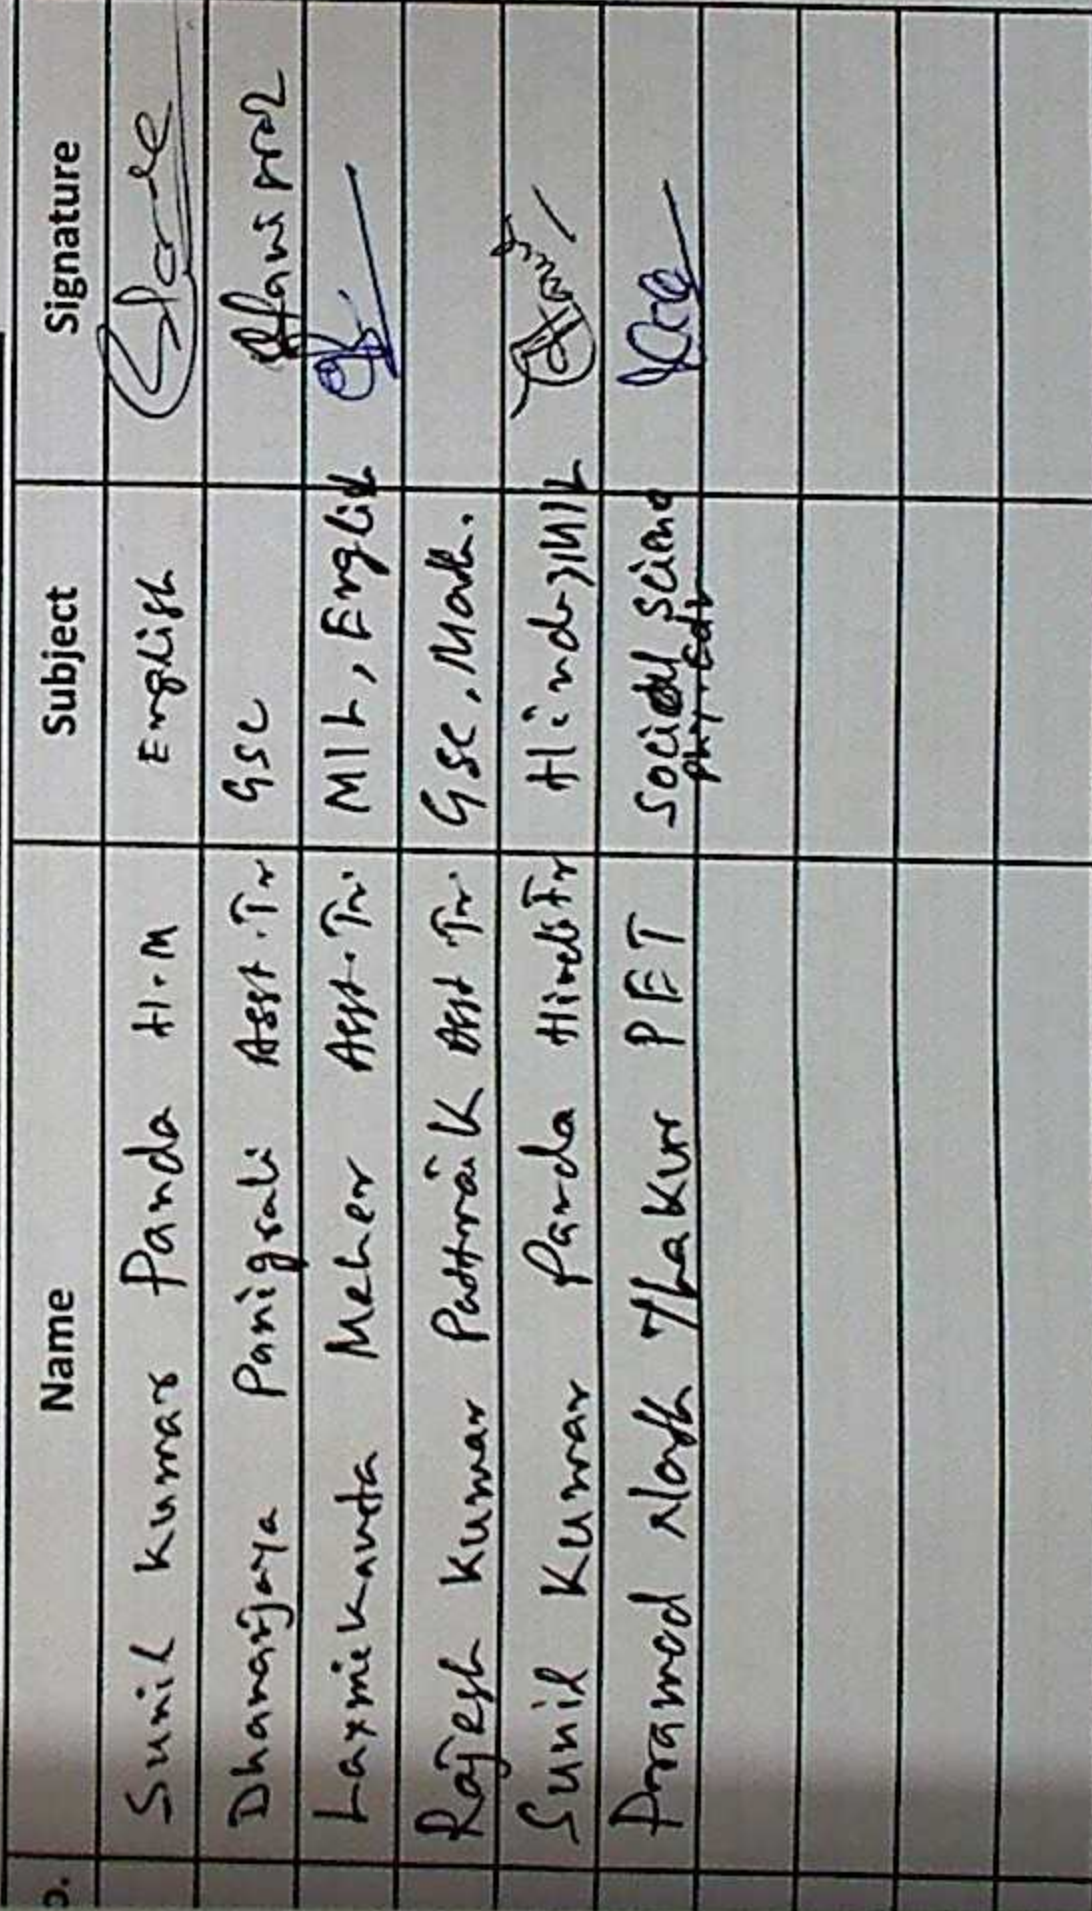 Name Subject Signature
Sunil Kumar Panda H.M English
Dhananjaya Panigrahi Asst.Tr GSC
Laxmikanta Meher Asst.Tr. MIL, English
Rajesh Kumar Pattnaik Asst Tr. GSC, Math.
Sunil Kumar Panda Hindi Tr Hindi, MIL
Pramod Nath Thakur PET Social Science
Phy. Edn